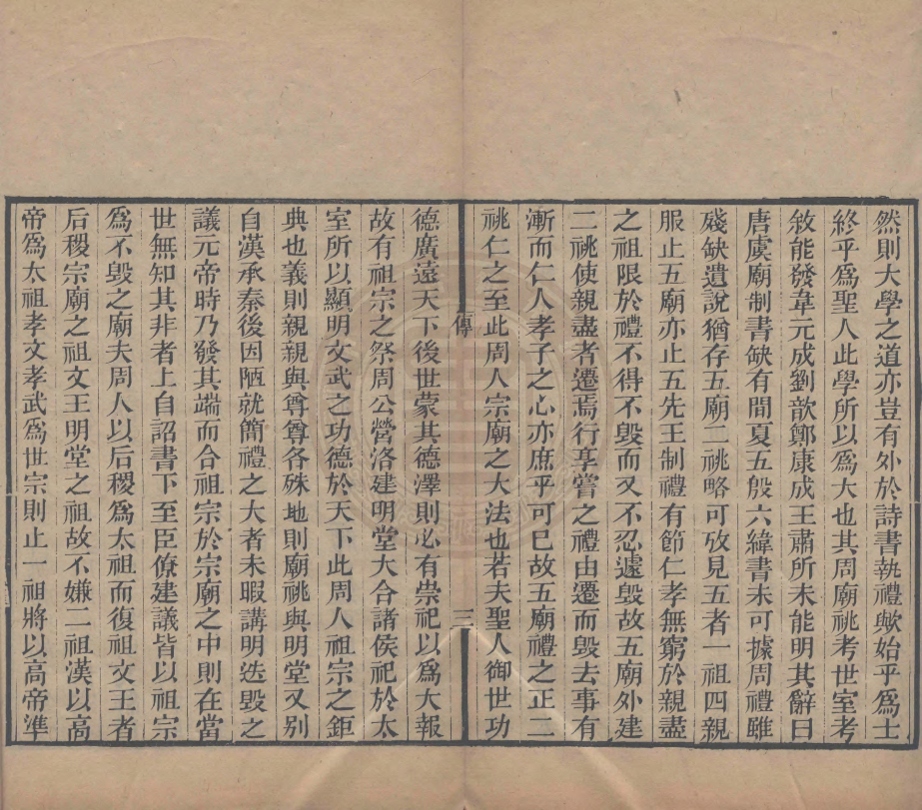 然則大學之道亦豈有外於詩書執禮歟始乎爲士
終乎爲聖人此學所以爲大也其周廟祧考世室考
敘能發韋元成劉歆鄭康成王肅所未能明其辭曰
唐虞廟制書缺有間夏五殷六緯書未可據周禮雖
殘缺遺說猶存五廟二祧略可攷見五者一祖四親
服止五廟亦止五先王制禮有節仁孝無窮於親盡
之祖限於禮不得不毀而又不忍遽毀故五廟外建
二祧使親盡者遷焉行享嘗之禮由遷而毀去事有
漸而仁人孝子之心亦庶乎可已故五廟禮之正二
祧仁之至此周人宗廟之大法也若夫聖人御世功
傳
三
德廣遠天下後世蒙其德澤則必有崇祀以爲大報
故有祖宗之祭周公營洛建明堂大合諸侯祀於太
室所以顯明文武之功德於天下此周人祖宗之鉅
典也義則親親與尊尊各殊地則廟祧與明堂又別
自漢承秦後因陋就簡禮之大者未暇講明迭毀之
議元帝時乃發其端而合祖宗於宗廟之中則在當
世無知其非者上自詔書下至臣僚建議皆以祖宗
爲不毀之廟夫周人以后稷爲太祖而復祖文王者
后稷宗廟之祖文王明堂之祖故不嫌二祖漢以高
帝爲太祖孝文孝武爲世宗則止一祖將以高帝準